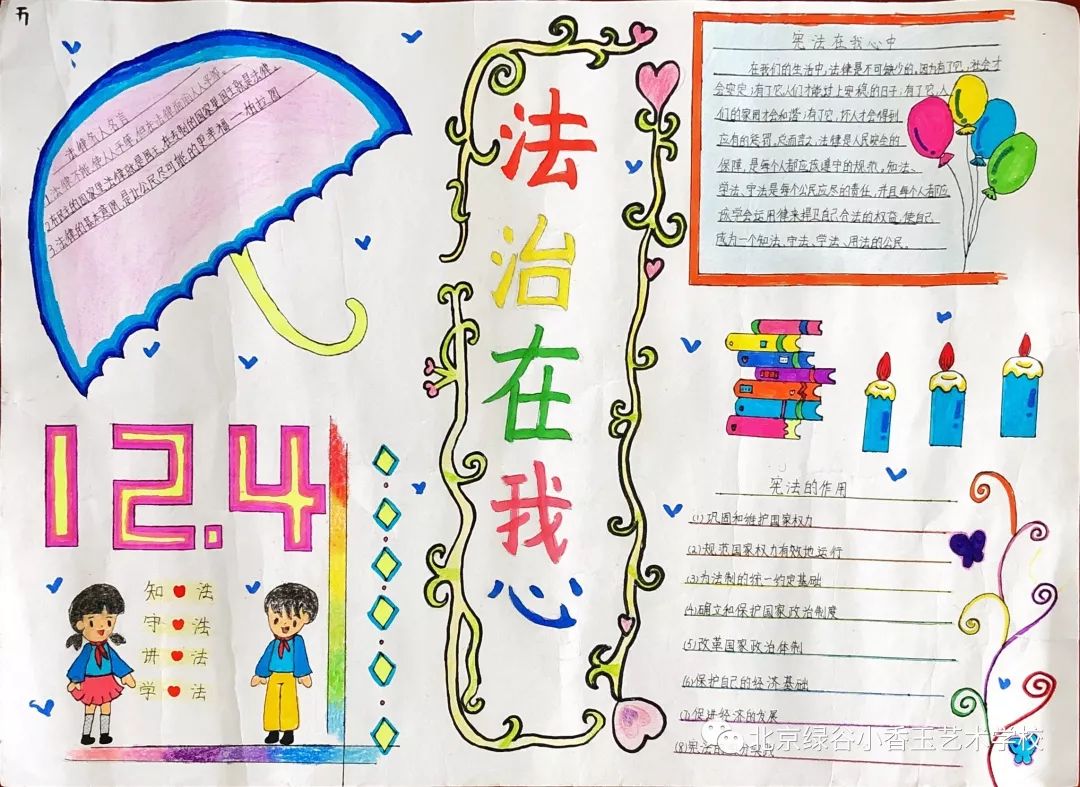 法律名人名言
1.法律不能使人人平等,但在法律面前人人平等。
2.在民主的国家里,法律就是国王;在专制的国家里,国王就是法律。
3.法律的基本意图,是让公民尽可能的更幸福。—柏拉图
法
治
在
我
心
宪法在我心中
在我们的生活中,法律是不可缺少的,因为有了它,社会才
会安定;有了它人们才能过上安稳的日子;有了它,人
们的家园才会和谐;有了它,坏人才会得到
应有的惩罚。总而言之,法律是人民安全的
保障,是每个人都应该遵守的规范。知法、
学法、守法是每个公民应尽的责任,并且每个人都应
该学会运用律来捍卫自己合法的权益,使自己
成为一个知法、守法、学法、用法的公民。
12.4
知 法
守 法
讲 法
学 法
宪法的作用
(1)巩固和维护国家权力
(2)规范国家权力有效地运行
(3)为法制的统一约定基础
(4)确立和保护国家政治制度
(5)改革国家政治体制
(6)保护自己的经济基础
(7)促进经济的发展
(8)宪法
北京绿谷小香玉艺术学校